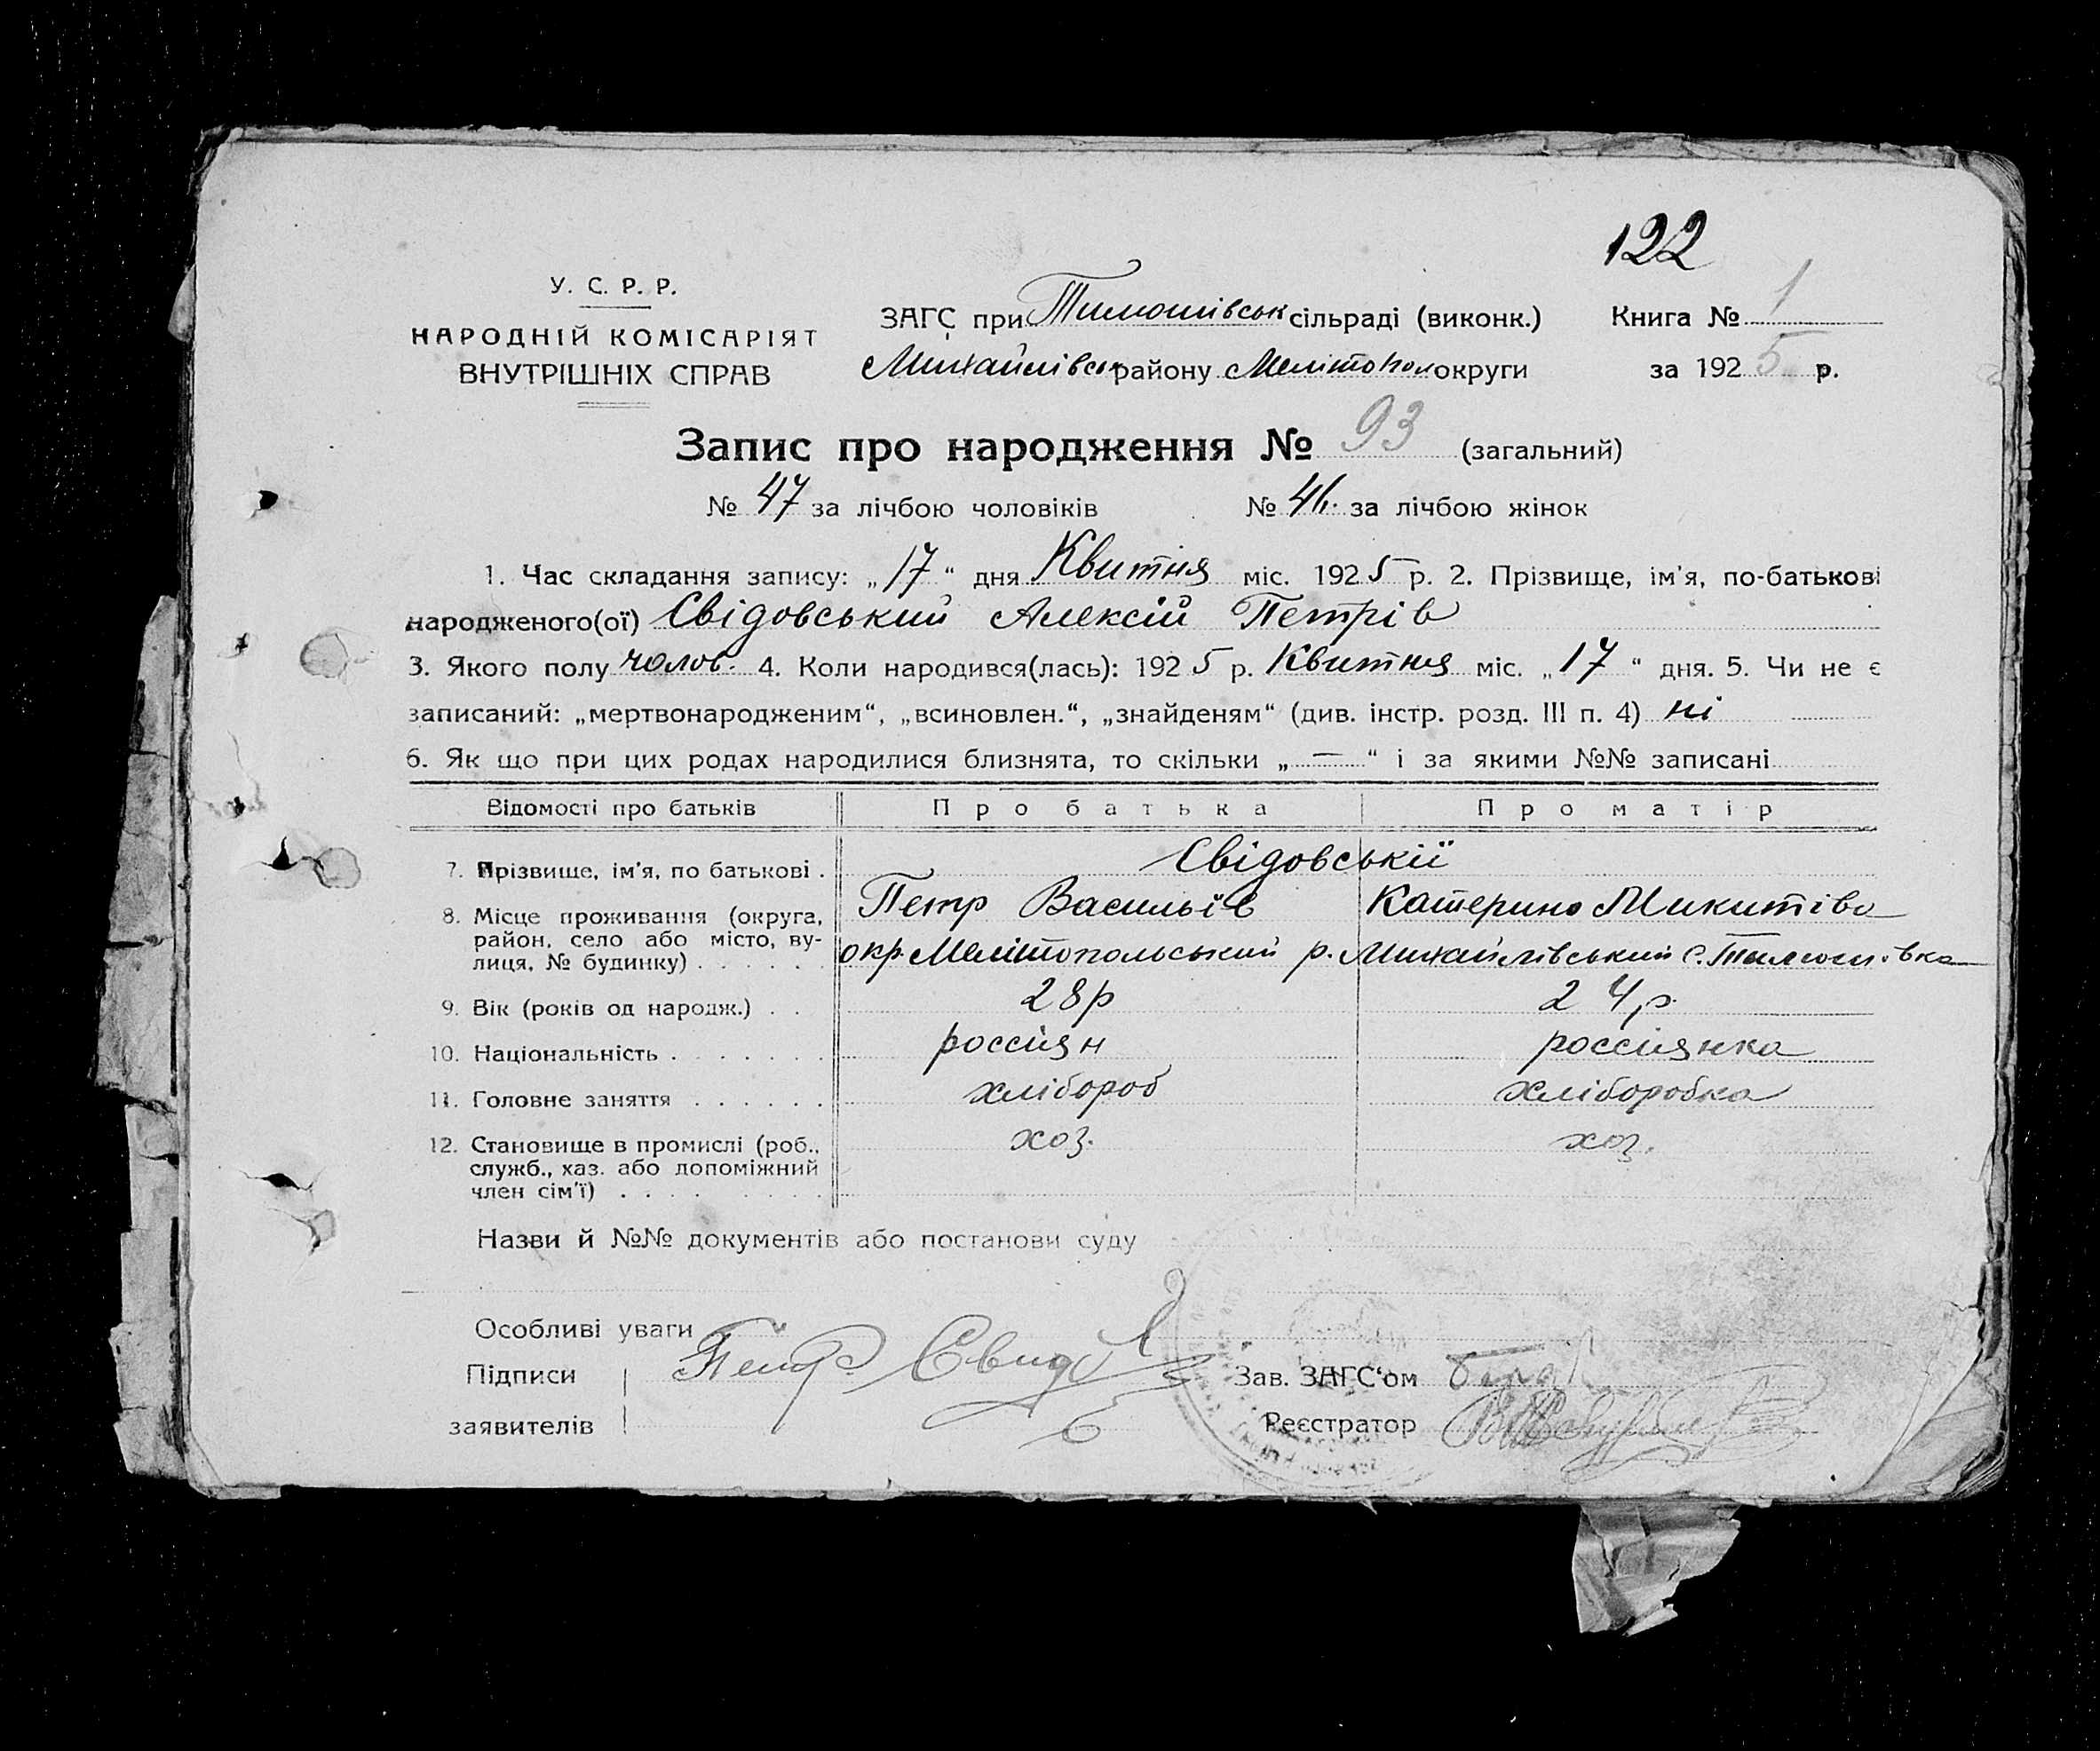 122
У. С. Р. Р.
НАРОДНІЙ КОМІСАРІЯТ
ВНУТРІШНІХ СПРАВ
ЗАГС при Тимошівськ сільраді (виконк.)
Михайлівськ району Мелітопол округи
Книга № 1
за 1925 р.
Запис про народження № 93 (загальний)
№ 47 за лічбою чоловіків № 46. за лічбою жінок
1. Час складання запису: „17“ дня Квитня міс. 1925 р. 2. Прізвище, ім'я, по-батькові
народженого(ої) Свідовський Алексій Петрів
3. Якого полу чолов. 4. Коли народився(лась): 1925 р. Квитня міс. „17“ дня. 5. Чи не є
записаний: „мертвонародженим“, „всиновлен.“, „знайденям“ (див. інстр. розд. III п. 4) ні
6. Як що при цих родах народилися близнята, то скільки „—“ і за якими №№ записані
Відомості про батьків Про батька Про матір
7. Прізвище, ім'я, по батькові . Свідовськії
Петр Васильїв Катерина Микитівa
8. Місце проживання (округа,
район, село або місто, ву-
лиця, № будинку) . . . . . . окр. Мелітопольський р. Михайлівський с. Тимошівка
9. Вік (років од народж.) . . 28р 24р.
10. Національність . . . . . . . россіян россіянка
11. Головне заняття . . . . . . хлібороб хліборобка
12. Становище в промислі (роб., хоз. хоз.
служб., хаз. або допоміжний
член сім'ї) . . . . . . . . .
Назви й №№ документів або постанови суду
Особливі уваги
Підписи Петр Свид
заявителів
Зав. ЗАГС‘ом
Реєстратор